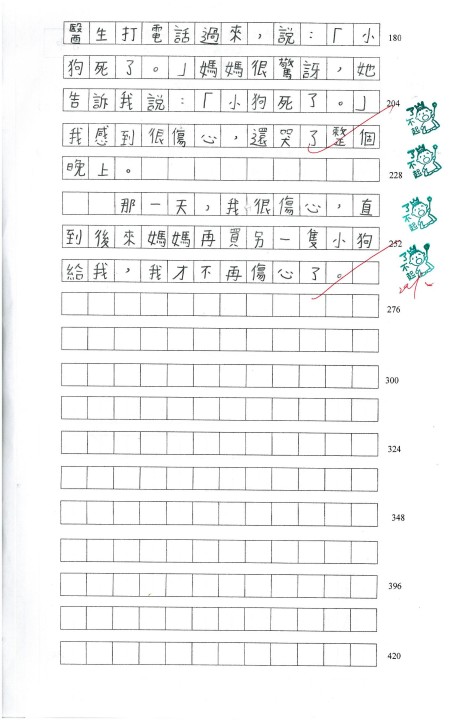 醫生打電話過來，說：「小 180
狗死了。」媽媽很驚訝，她
告訴我說：「小狗死了。」 204
我感到很傷心，還哭了整個
晚上。 228
那一天，我很傷心，直
到後來媽媽再買另一隻小狗 252
給我，我才不再傷心了。
276
300
324
348
396
420
了不起
了不起
了不起
了不起